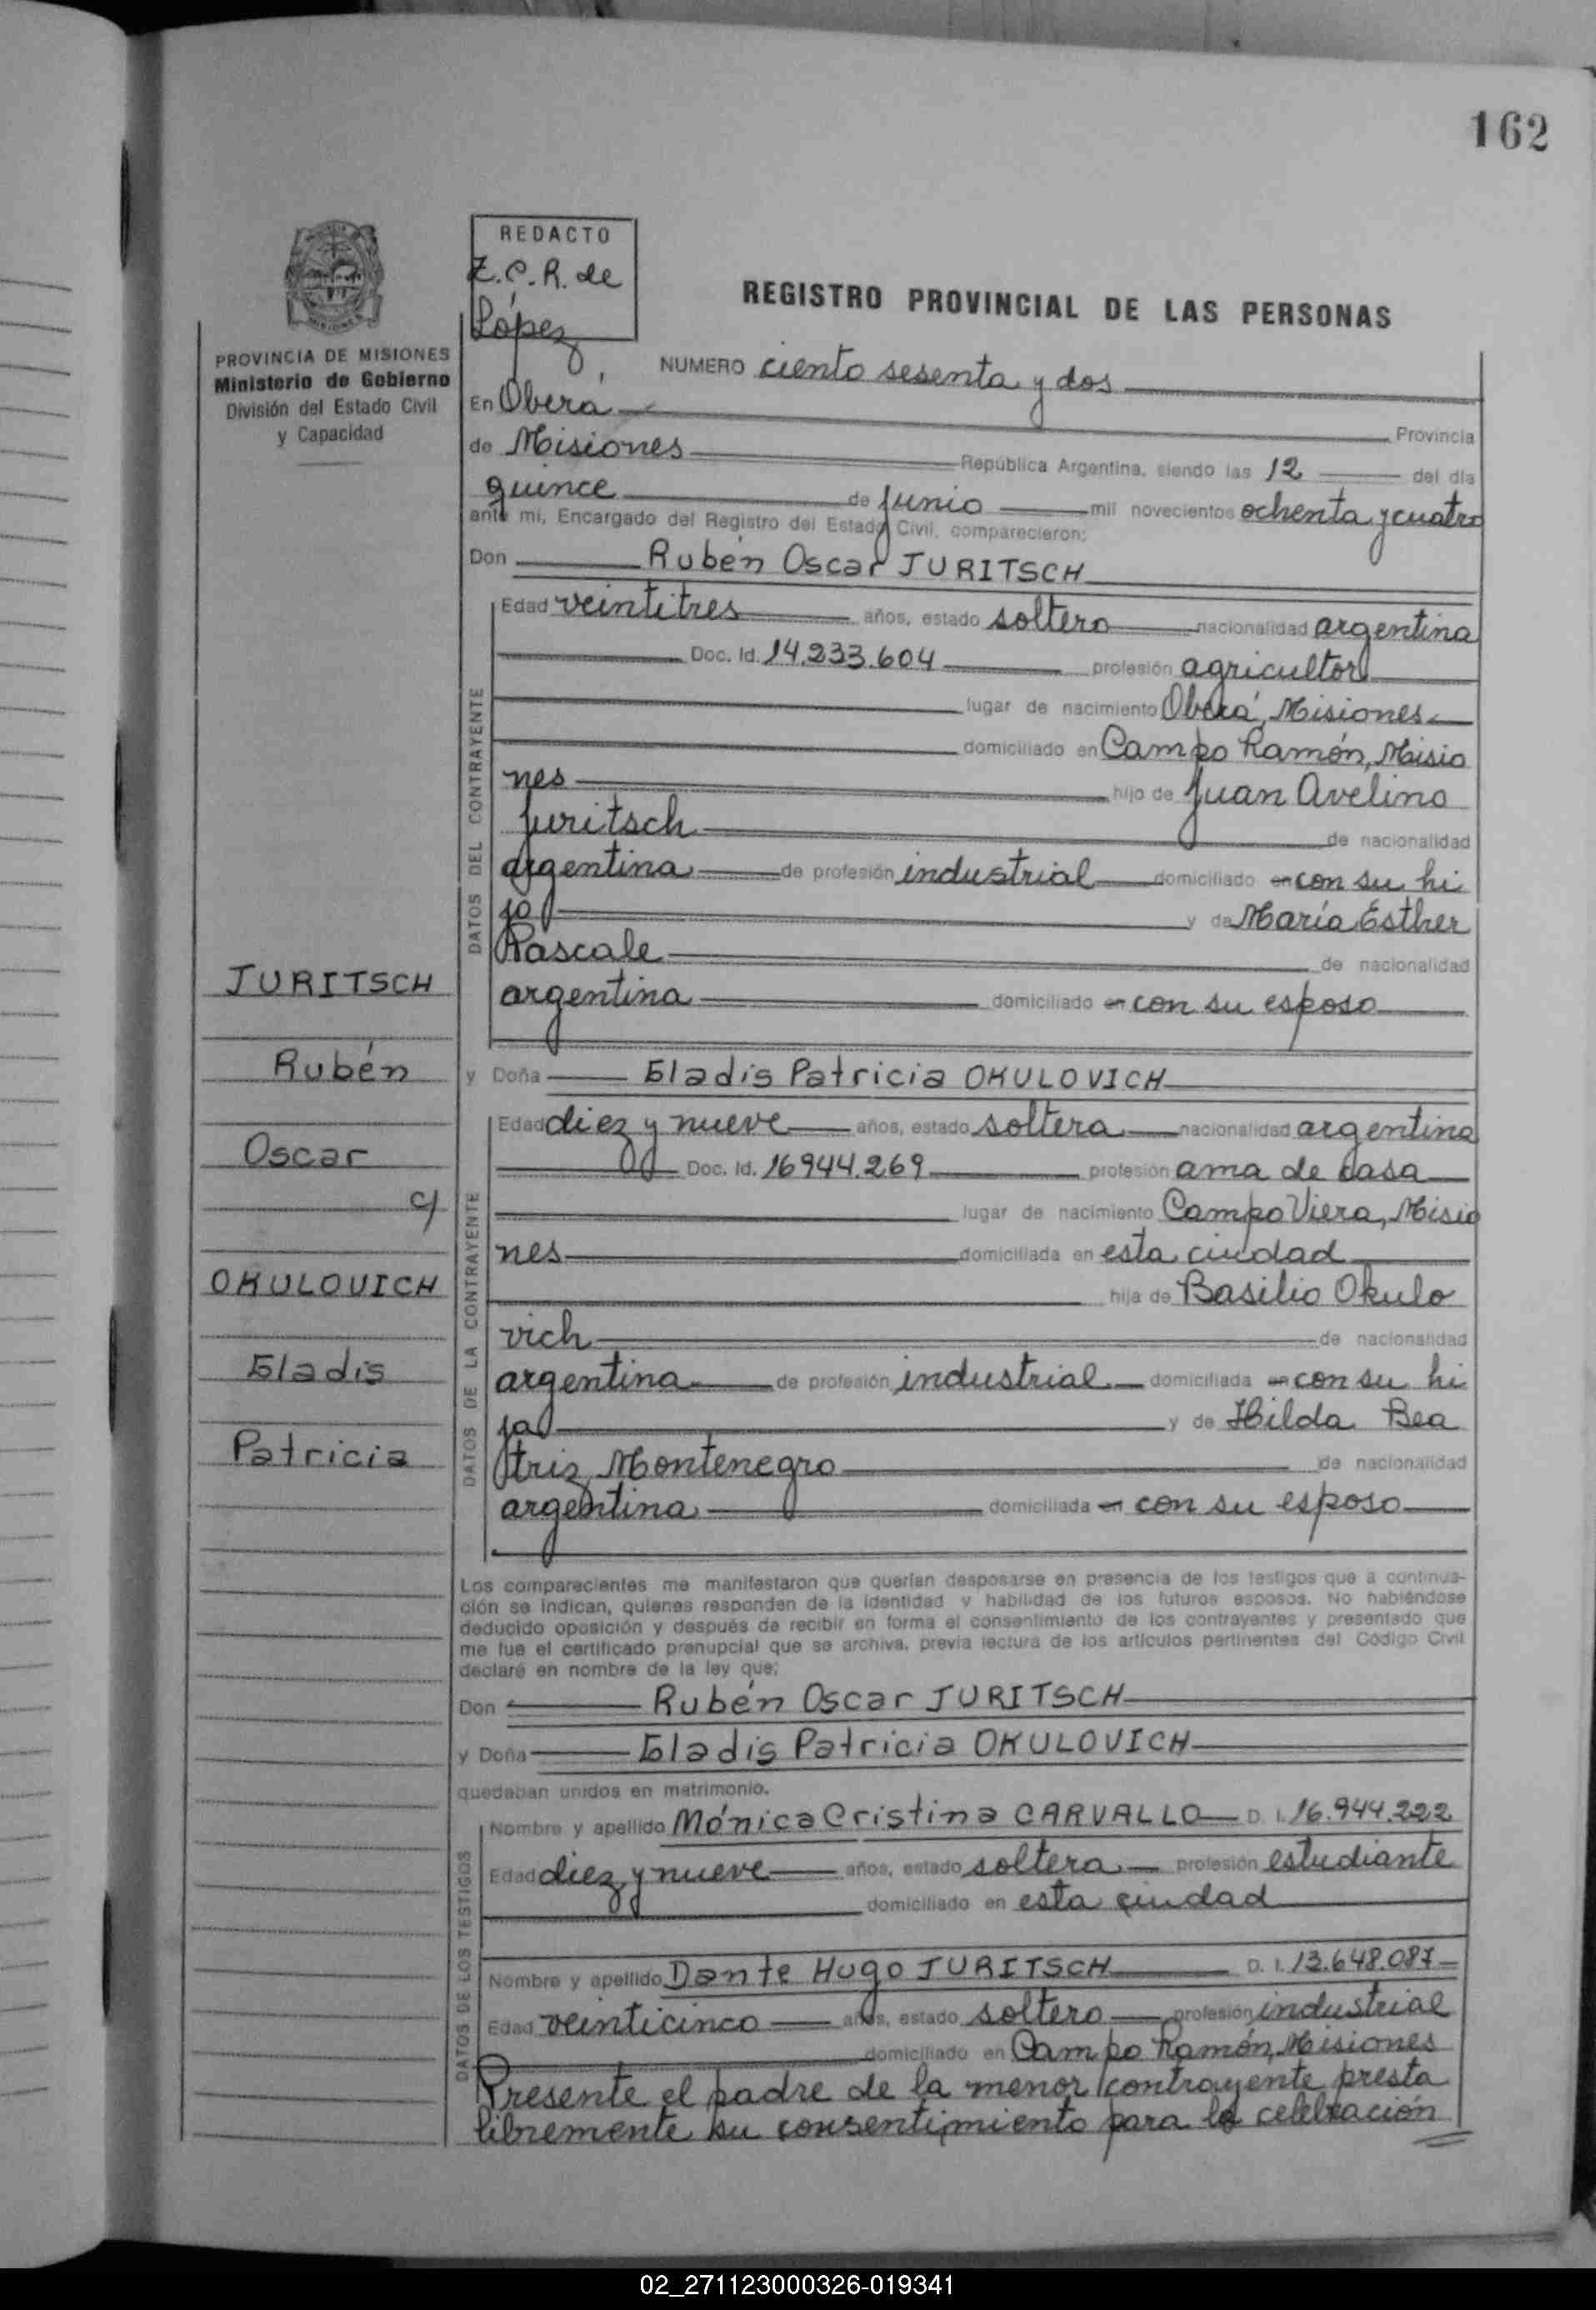 162
REDACTO
Z.C.R. de
López
REGISTRO PROVINCIAL DE LAS PERSONAS
PROVINCIA DE MISIONES
Ministerio de Gobierno
División del Estado Civil
y Capacidad
NUMERO ciento sesenta y dos
En Oberá Provincia
de Misiones República Argentina, siendo las 12 del día
quince de junio mil novecientos ochenta y cuatro
ante mí, Encargado del Registro del Estado Civil, comparecieron:
Don Rubén Oscar JURITSCH
DATOS DEL CONTRAYENTE
Edad veintitres años, estado soltero nacionalidad argentina
Doc. Id. 14.233.604 profesión agricultor
lugar de nacimiento Oberá, Misiones
domiciliado en Campo Ramón, Misio
nes hijo de Juan Avelino
Juritsch de nacionalidad
argentina de profesión industrial domiciliado en con su hi
jo y de María Esther
Pascale de nacionalidad
argentina domiciliado en con su esposo
JURITSCH
Rubén
Oscar
c/
OKULOVICH
Gladis
Patricia
y Doña Gladis Patricia OKULOVICH
DATOS DE LA CONTRAYENTE
Edad diez y nueve años, estado soltera nacionalidad argentina
Doc. Id. 16944.269 profesión ama de casa
lugar de nacimiento Campo Viera, Misio
nes domiciliada en esta ciudad
hija de Basilio Okulo
vich de nacionalidad
argentina de profesión industrial domiciliada en con su hi
ja y de Hilda Bea
triz Montenegro de nacionalidad
argentina domiciliada en con su esposo
Los comparecientes me manifestaron que querían desposarse en presencia de los testigos que a continua-
ción se indican, quienes responden de la identidad y habilidad de los futuros esposos. No habiéndose
deducido oposición y después de recibir en forma el consentimiento de los contrayentes y presentado que
me fue el certificado prenupcial que se archiva, previa lectura de los artículos pertinentes del Código Civil
declaré en nombre de la ley que:
Don Rubén Oscar JURITSCH
y Doña Gladis Patricia OKULOVICH
quedaban unidos en matrimonio.
DATOS DE LOS TESTIGOS
Nombre y apellido Mónica Cristina CARVALLO D. I. 16.944.222
Edad diez y nueve años, estado soltera profesión estudiante
domiciliado en esta ciudad
Nombre y apellido Dante Hugo JURITSCH D. I. 13.648.087
Edad veinticinco años, estado soltero profesión industrial
domiciliado en Campo Ramón, Misiones
Presente el padre de la menor contrayente presta
libremente su consentimiento para la celebración
02_271123000326-019341